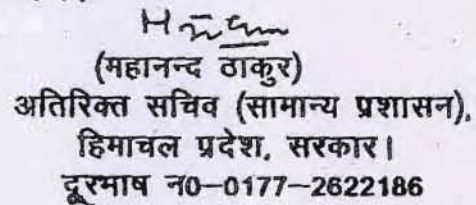 (महानन्द ठाकुर)
अतिरिक्त सचिव (सामान्य प्रशासन),
हिमाचल प्रदेश, सरकार।
दूरभाष न0–0177–2622186